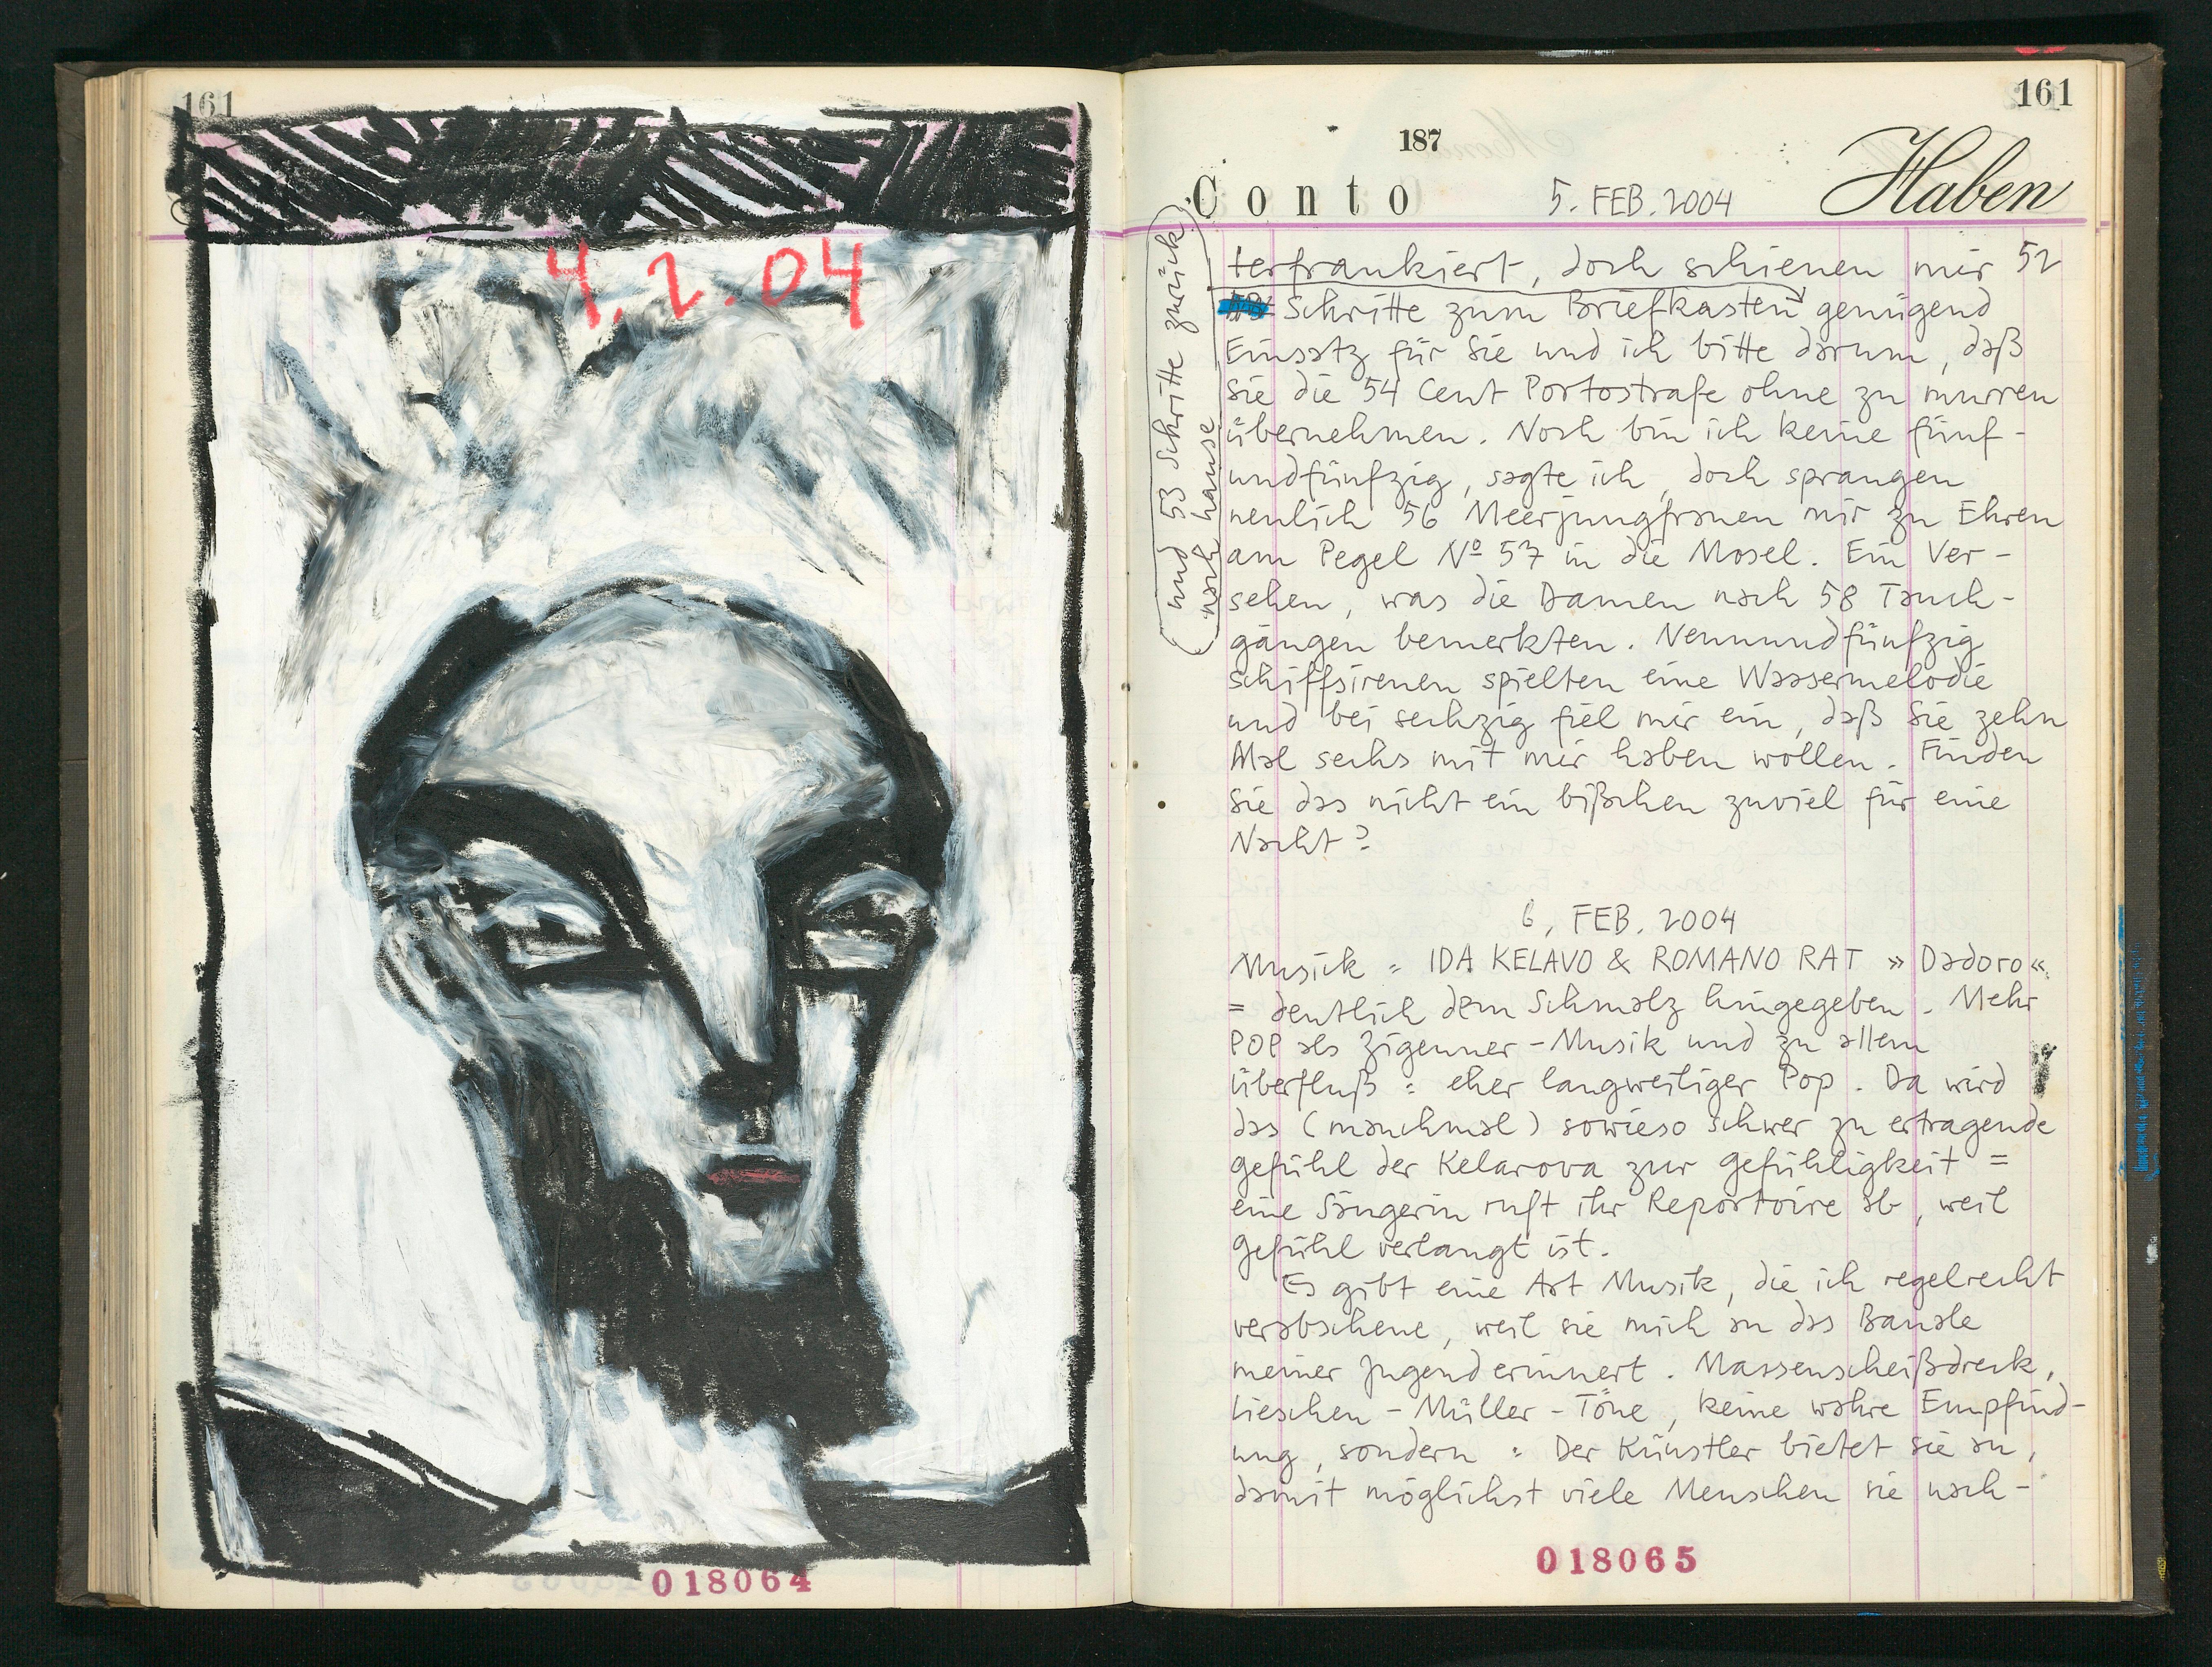 161
4.2.04
018064
161
187
Conto 5. FEB. 2004 Haben
terfrankiert, doch schienen mir 52
Schritte zum Briefkasten genügend
und 53 Schritte zurück
nach hause
Einsatz für Sie und ich bitte darum, daß
Sie die 54 Cent Portostrafe ohne zu murren
übernehmen. Noch bin ich keine fünf-
undfünfzig, sagte ich, doch sprangen
neulich 56 Meerjungfrauen mir zu Ehren
am Pegel Nº 57 in die Mosel. Ein Ver-
sehen, was die Damen nach 58 Tauch-
gängen bemerkten. Neunundfünfzig
Schiffsirenen spielten eine Wassermelodie
und bei sechzig fiel mir ein, daß Sie zehn
Mal sechs mit mir haben wollen. Finden
Sie das nicht ein bißchen zuviel für eine
Nacht?
6, FEB. 2004
Musick = IDA KELAVO & ROMANO RAT »Dadoro«
= deutlich dem Schmalz hingegeben. Mehr
POP als Zigeuner-Musik und zu allem
Überfluß: eher langweiliger Pop. Da wird
das (manchmal) sowieso schwer zu ertragende
Gefühl der Kelarova zur Gefühligkeit =
eine Sängerin ruft ihr Reportoire ab, weil
Gefühl verlangt ist.
Es gibt eine Art Musik, die ich regelrecht
verabscheue, weil sie mich an das Banale
meiner Jugend erinnert. Massenscheißdreck,
Lieschen-Müller-Töne, keine wahre Empfind-
ung, sondern: Der Künstler bietet sie an,
damit möglichst viele Menschen sie nach-
018065